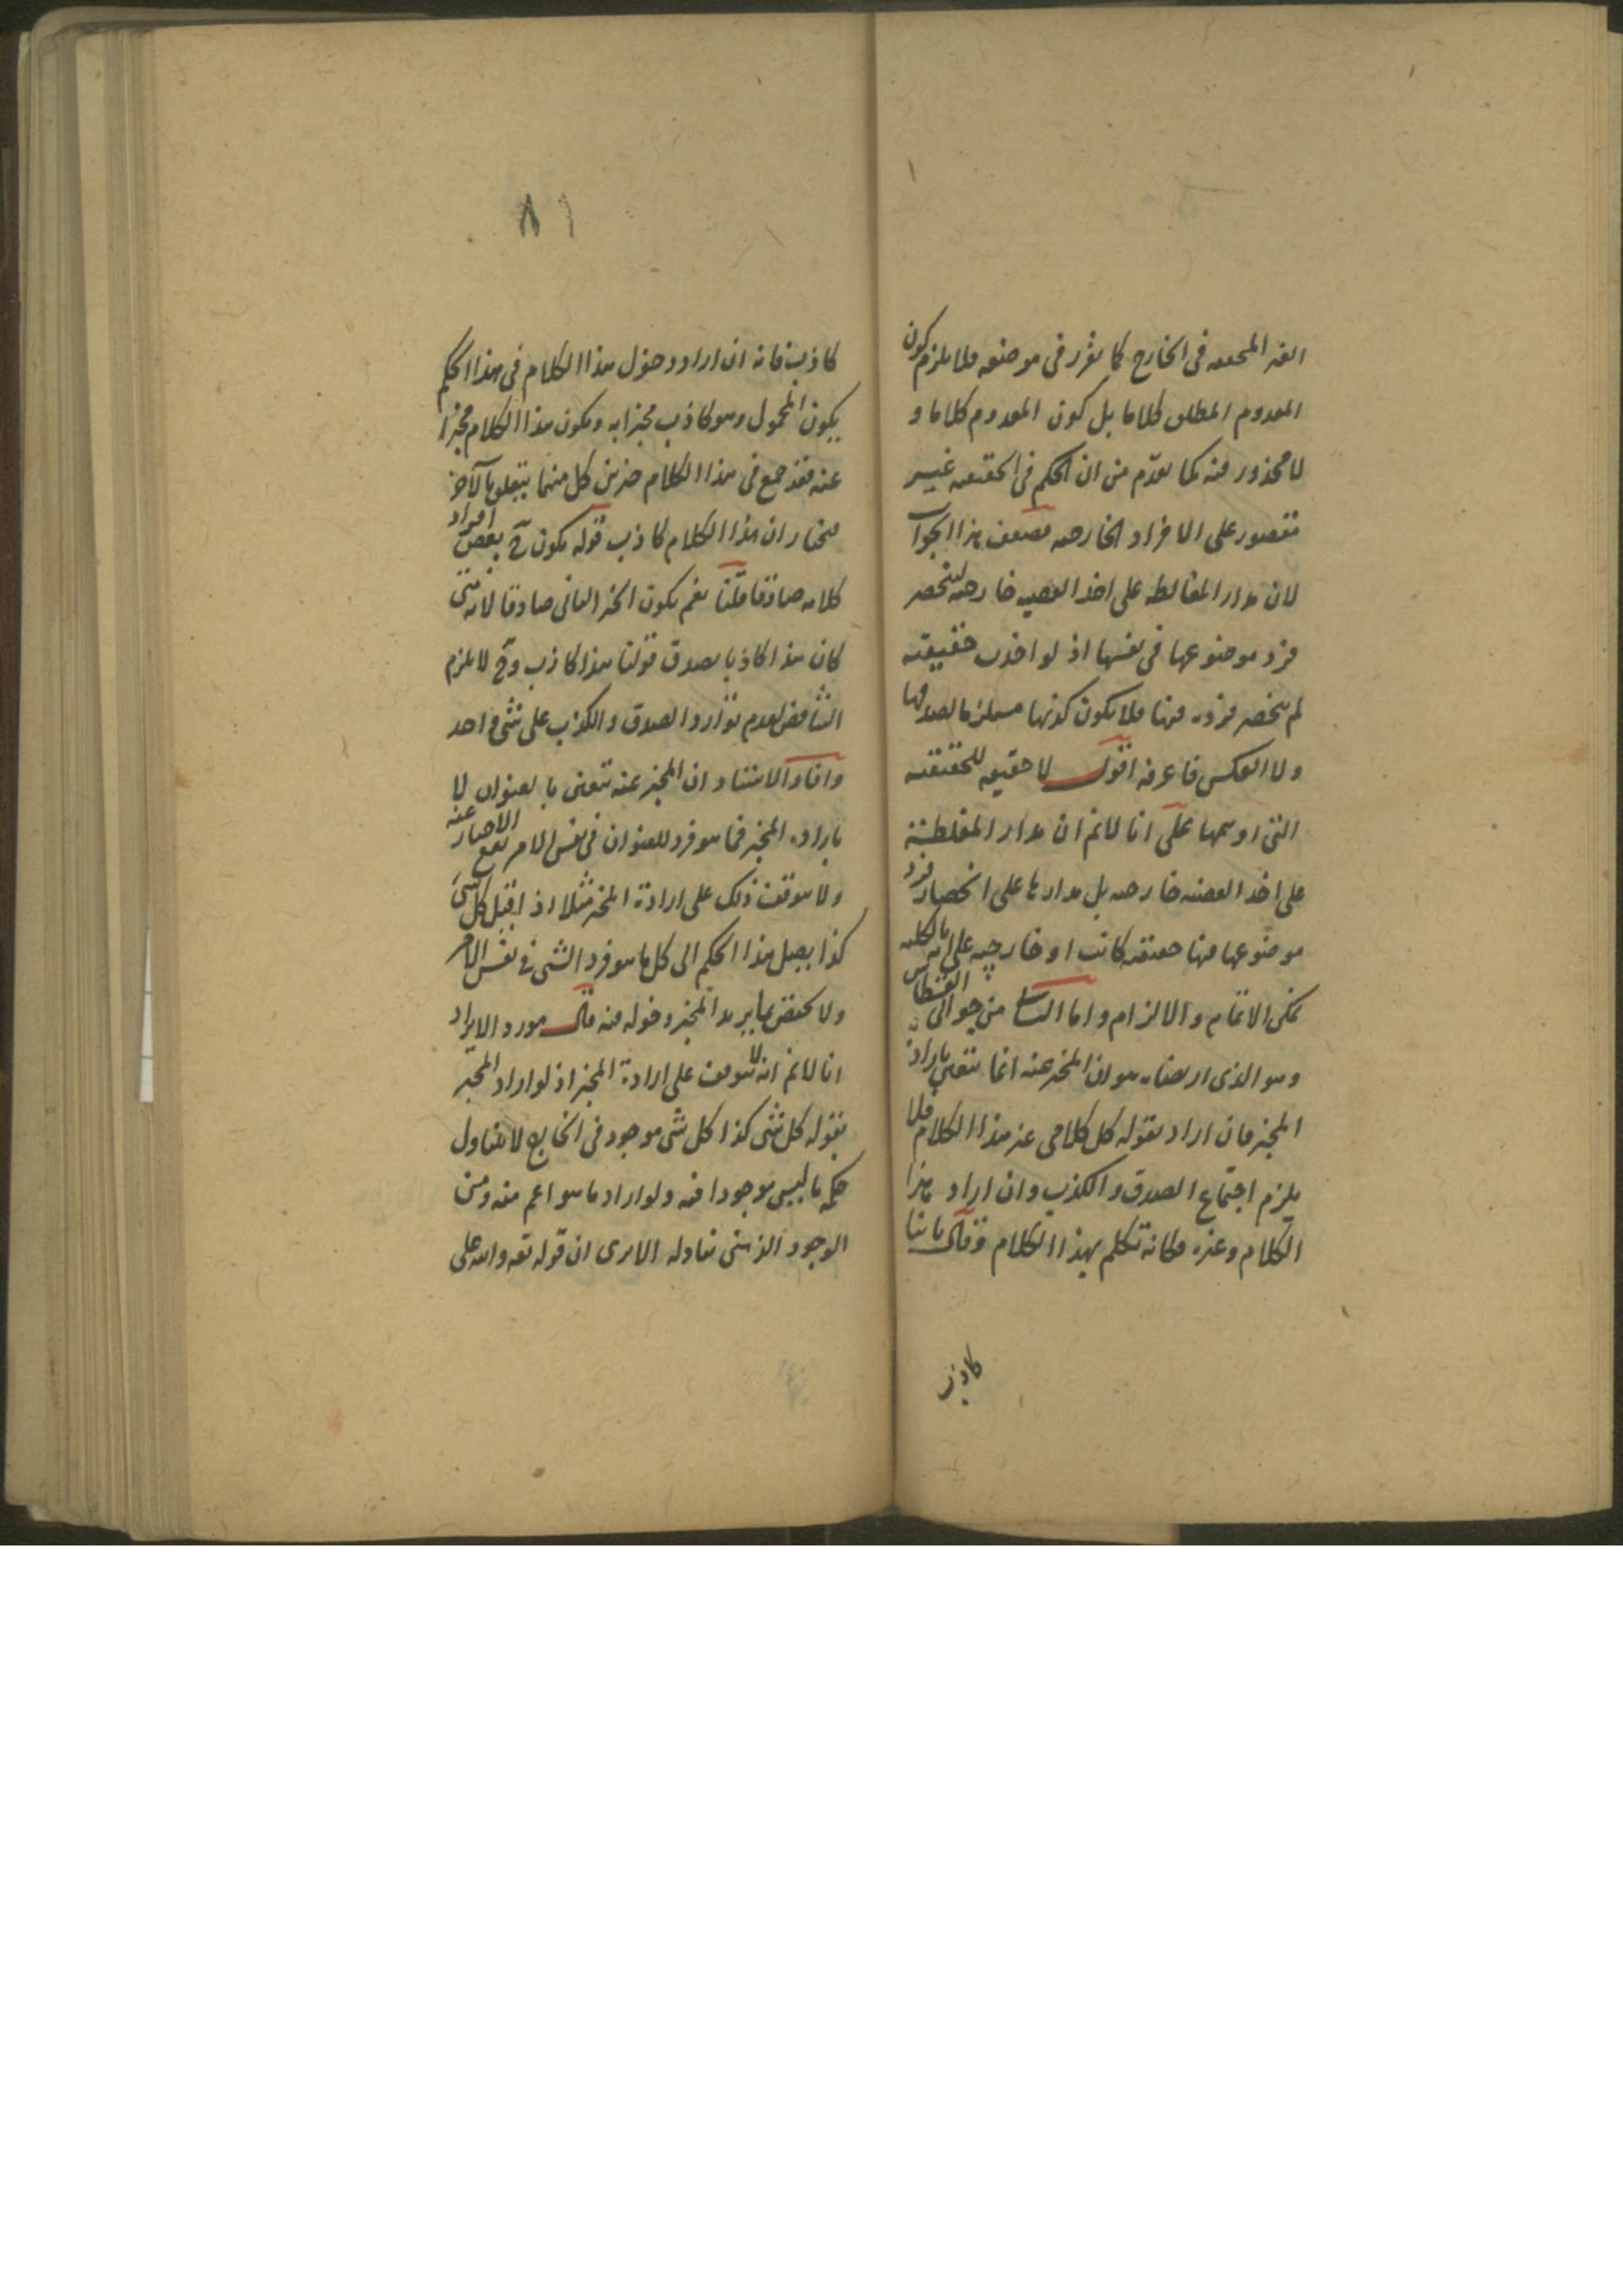 الغير المحققة في الخارج كما تقرر في موضعه فلا يلزم كون
المعدوم المطلق كلاما بل كون المعدوم كلاما و
لا محذور فيه كما تقدم من ان الحكم في الحقيقية غير
مقصور على الافراد الخارجية فضعف هذا الجواب
لان مدار المغالطة على اخذ القضية خارجية لينحصر
فرد موضوعها في نفسها اذ لو اخذت حقيقية
لم ينحصر فرده فيها فلا يكون كذبها مستلزما لصدقها
ولا العكس فاعرفه اقول لا حقيقة للحقيقية
التي اوسمها على انا لانم ان مدار المغلطة
على اخذ القضية خارجية بل مدارها على انحصار فرد
موضوعها فيها حقيقية كانت او خارجية على انه بالكلية
يمكن الاتمام والالزام واما الثالث من جوابي القسطاس
وهو الذي ارتضاه هو ان المخبر عنه انما يتعين بارادة
المخبر فان اراد بقوله كل كلامي غير هذا الكلام فلا
يلزم اجتماع الصدق والكذب وان اراد هذا
الكلام وغيره فكانه تكلم بهذا الكلام وقال ثانيا
كاذب
٨٦
كاذب فانه ان اراد دخول هذا الكلام في هذا الحكم
يكون المحمول وهو كاذب مخبرا به ويكون هذا الكلام مخبرا
عنه فقد جمع في هذا الكلام خبرين كل منهما يتعلق بالآخر
فنختار ان هذا الكلام كاذب قوله يكون ح بعض افراد
كلامه صادقا قلنا نعم يكون الخبر الثاني صادقا لانه متى
كان هذا كاذبا يصدق قولنا هذا كاذب وح لا يلزم
التناقض لعدم توارد الصدق والكذب على شئ واحد
وافاد الاستاد ان المخبر عنه يتعين بالعنوان لا
بارادة المخبر فما هو فرد للعنوان في نفس الامر يقع الاخبار عنه
ولا يتوقف ذلك على ارادة المخبر مثلا اذ اقيل كل شئ
كذا يصل هذا الحكم الى كل ما هو فرد الشئ في نفس الامر
ولا يختص بما يريد المخبر دخوله فيه قال مورد الايراد
انا لانم انه لا يتوقف على ارادة المخبر اذ لو اراد المخبر
بقوله كل شئ كذا كل شئ موجود في الخارج لا يتناول
حكمه ما ليس موجودا فيه ولو اراد ما هو اعم منه ومن
الوجود الذهني تناوله الا يرى ان قوله تعه والله على